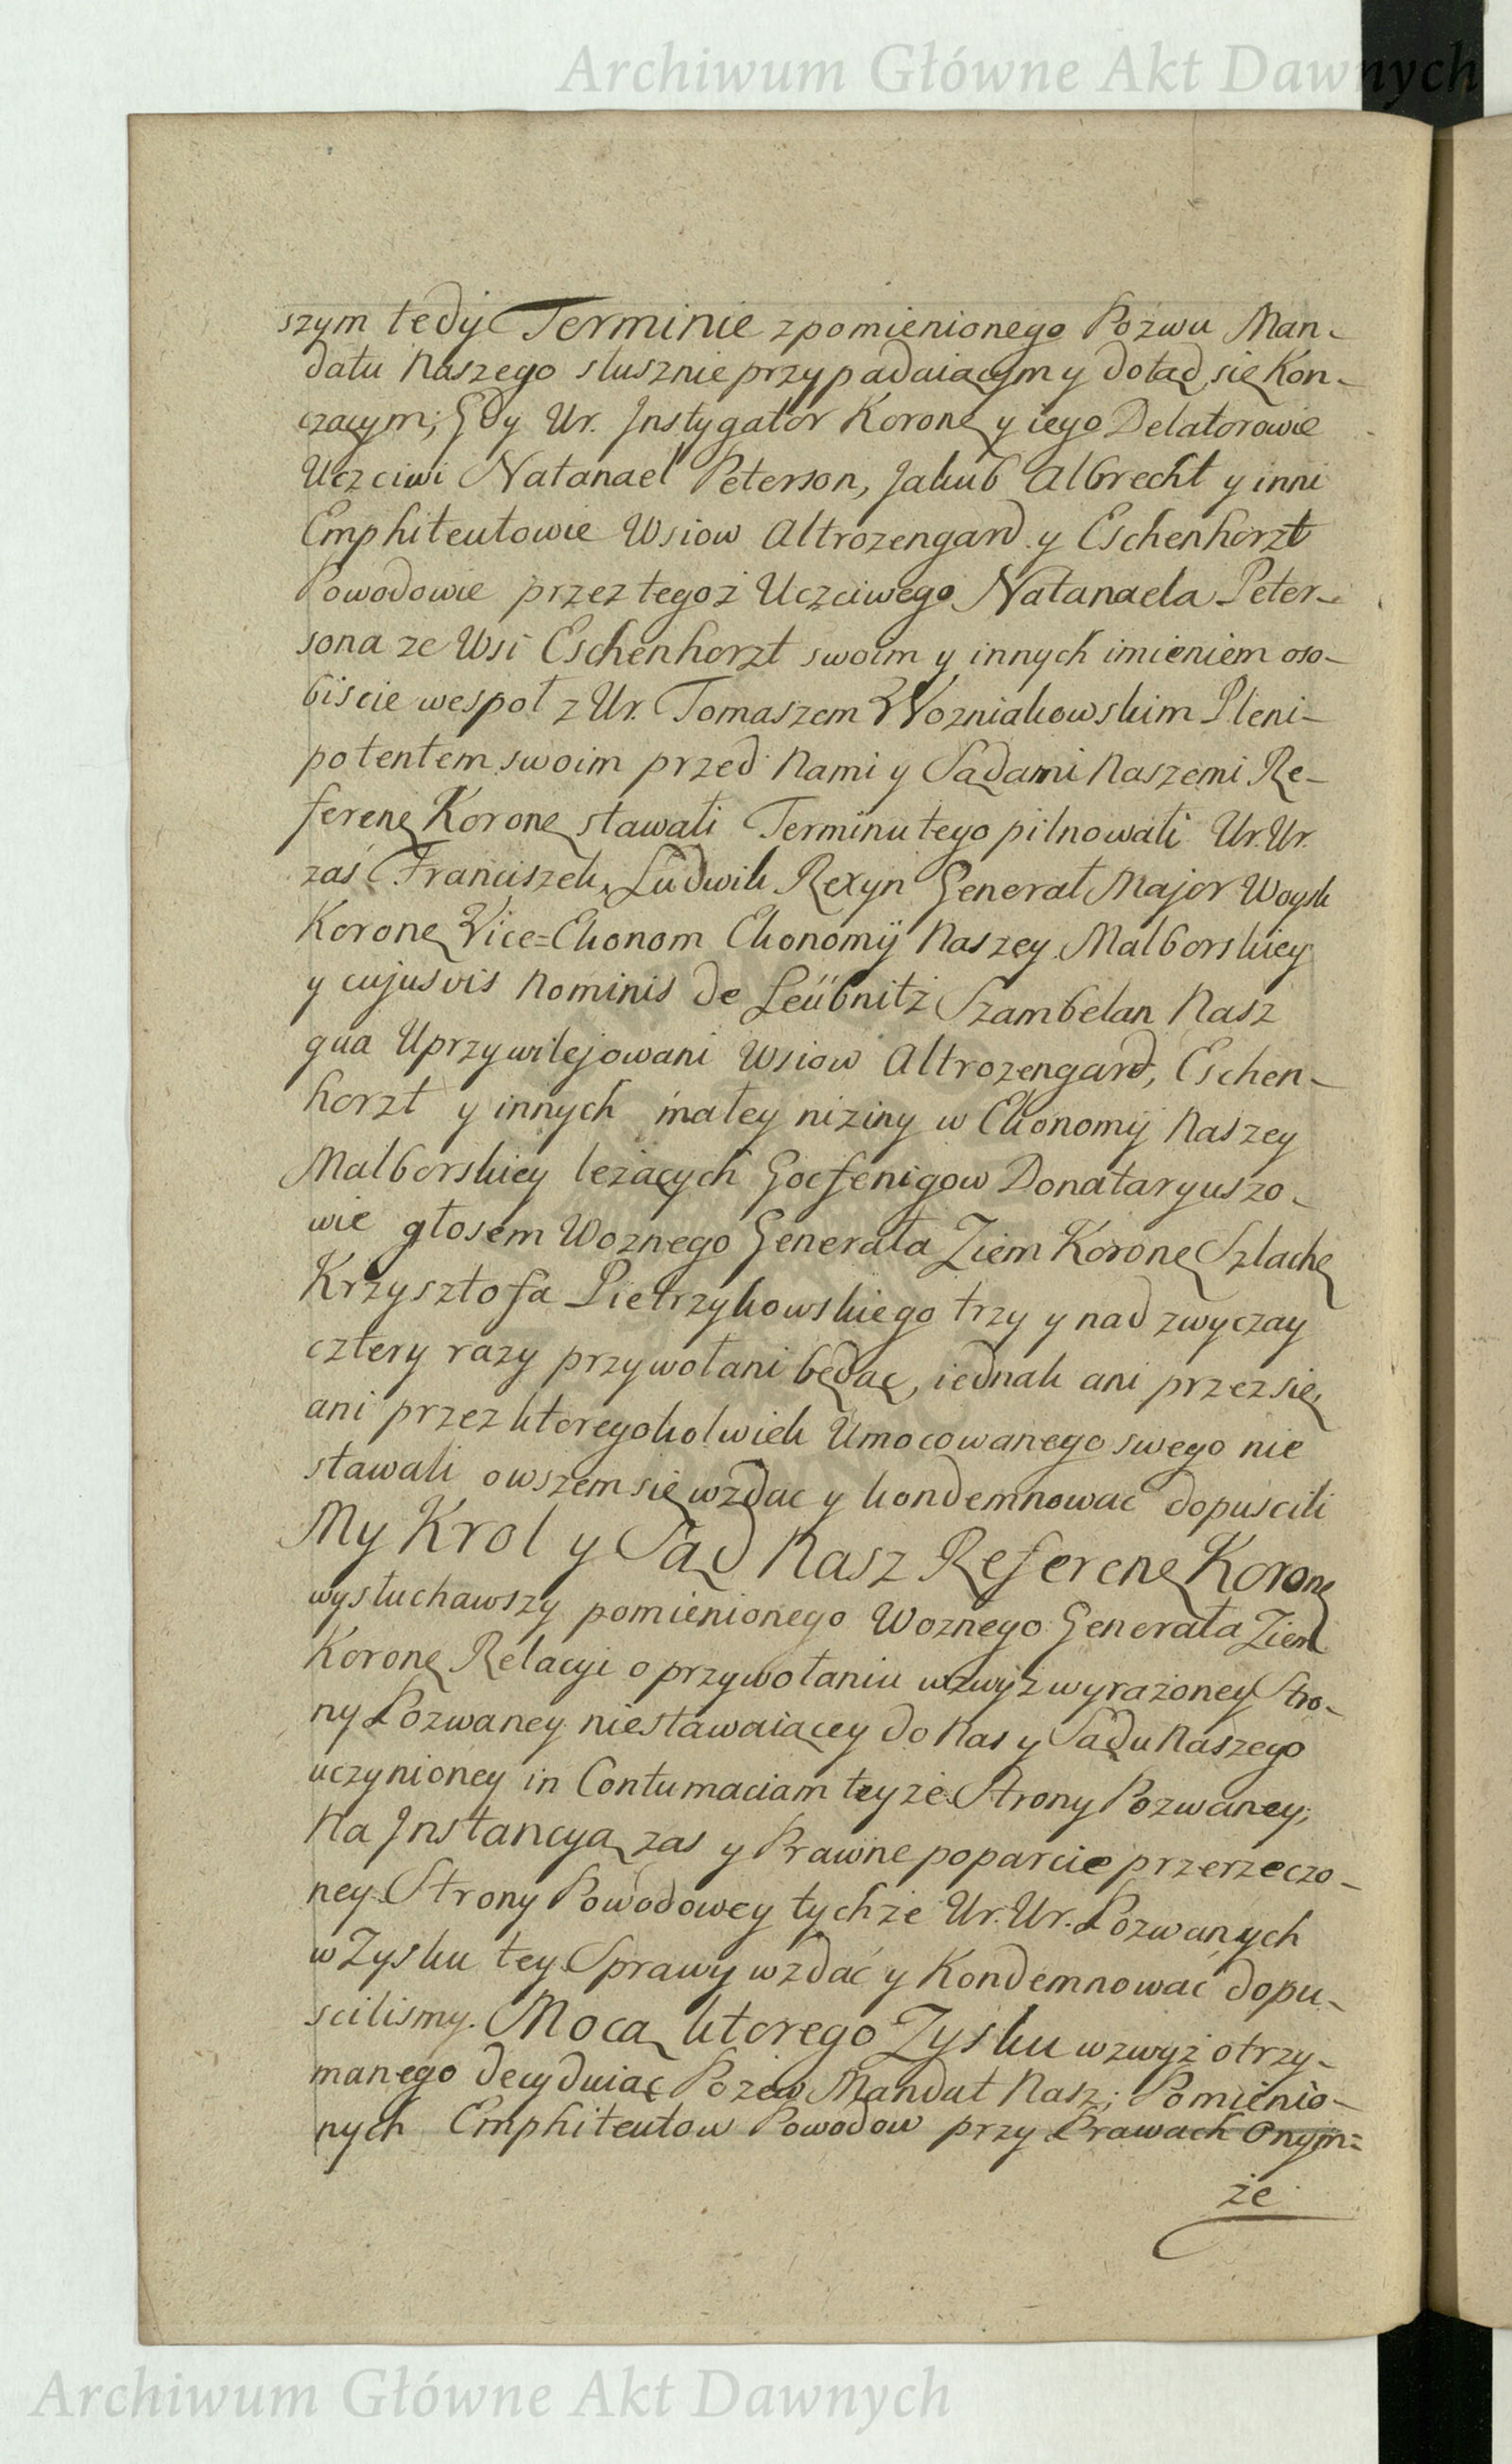 Archiwum Główne Akt Dawnych
szym tedy Terminie z pomienionego Pozwu Man-
datu Naszego słusznie przypadaiącym y dotąd się Kon-
czącym; Gdy Ur. Instygator Koronę y iego Delatorowie
Uczciwi Natanael Peterson, Jakub Albrecht y inni
Emphiteutowie Wsiow Altrozengard y Eschenhorzt
Powodowie przez tegoż Uczciwego Natanaela Peter-
sona ze Wsi Eschenhorzt swoim y innych imieniem oso-
biscie wespoł z Ur. Tomaszem Wozniakowskim Pleni-
potentem swoim przed Nami y Sądami Naszemi Re-
ferenę Koronę stawali Terminu tego pilnowali Ur. Ur.
zaś Franciszek, Ludwik Rexyn Generał Major Woysk
Koronę Vice=Ekonom Ekonomij Naszey Malborskiey
y cujusvis Nominis de Leübnitz Szambelan Nasz
qua Uprzywilejowani Wsiow Altrozengard, Eschen-
horzt y innych małey niziny w Ekonomij Naszey
Malborskiey leżących Gocfenigow Donataryuszo-
wie głosem Woznego Generała Ziem Koronę Szlachę
Krzysztofa Pietrzykowskiego trzy y nad zwyczay
cztery razy przywołani będąc, iednak ani przez się,
ani przez ktoregokolwiek Umocowanego swego nie
stawali owszem się wzdac y kondemnowac dopuscili
My Krol y Sąd Nasz Referenę Koronę
wysłuchawszy pomienionego Woznego Generała Ziem
Koronę Relacyi o przywołaniu wzwyż wyrażoney Stro-
ny Pozwaney niestawaiącey do Nas y Sądu Naszego
uczynioney in Contumaciam teyże Strony Pozwaney;
Na Instancyą zas y Prawne poparcie przerzeczo-
ney Strony Powodowey tychże Ur. Ur. Pozwanych
w Zysku tey Sprawy wzdać y Kondemnować dopu-
scilismy. Mocą ktorego Zysku wzwyż otrzy-
manego decyduiąc Pozew Mandat Nasz; Pomienio-
nych Emphiteutow Powodow przy Prawach Onym=
że
Archiwum Główne Akt Dawnych